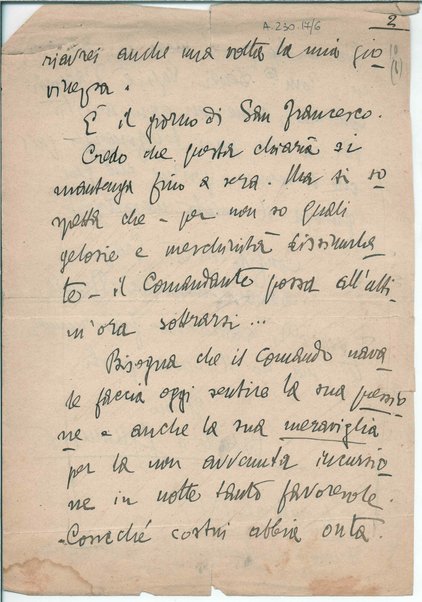 A.230.17/6
2
riavrei anche una volta la mia gio
vinezza.
È il giorno di San Francesco.
Credo che questa chiarità si
mantenga fino a sera. Ma si so
spetta che – per non so quali
gelosie e meschinità dissimula
te – il Comandante possa all'ulti
m'ora sottrarsi ...
Bisogna che il Comando nava
le faccia oggi sentire la sua pressio
ne e anche la sua meraviglia
per la non avvenuta incursio
ne in notte tanto favorevole.
Cosicché costui abbia onta.